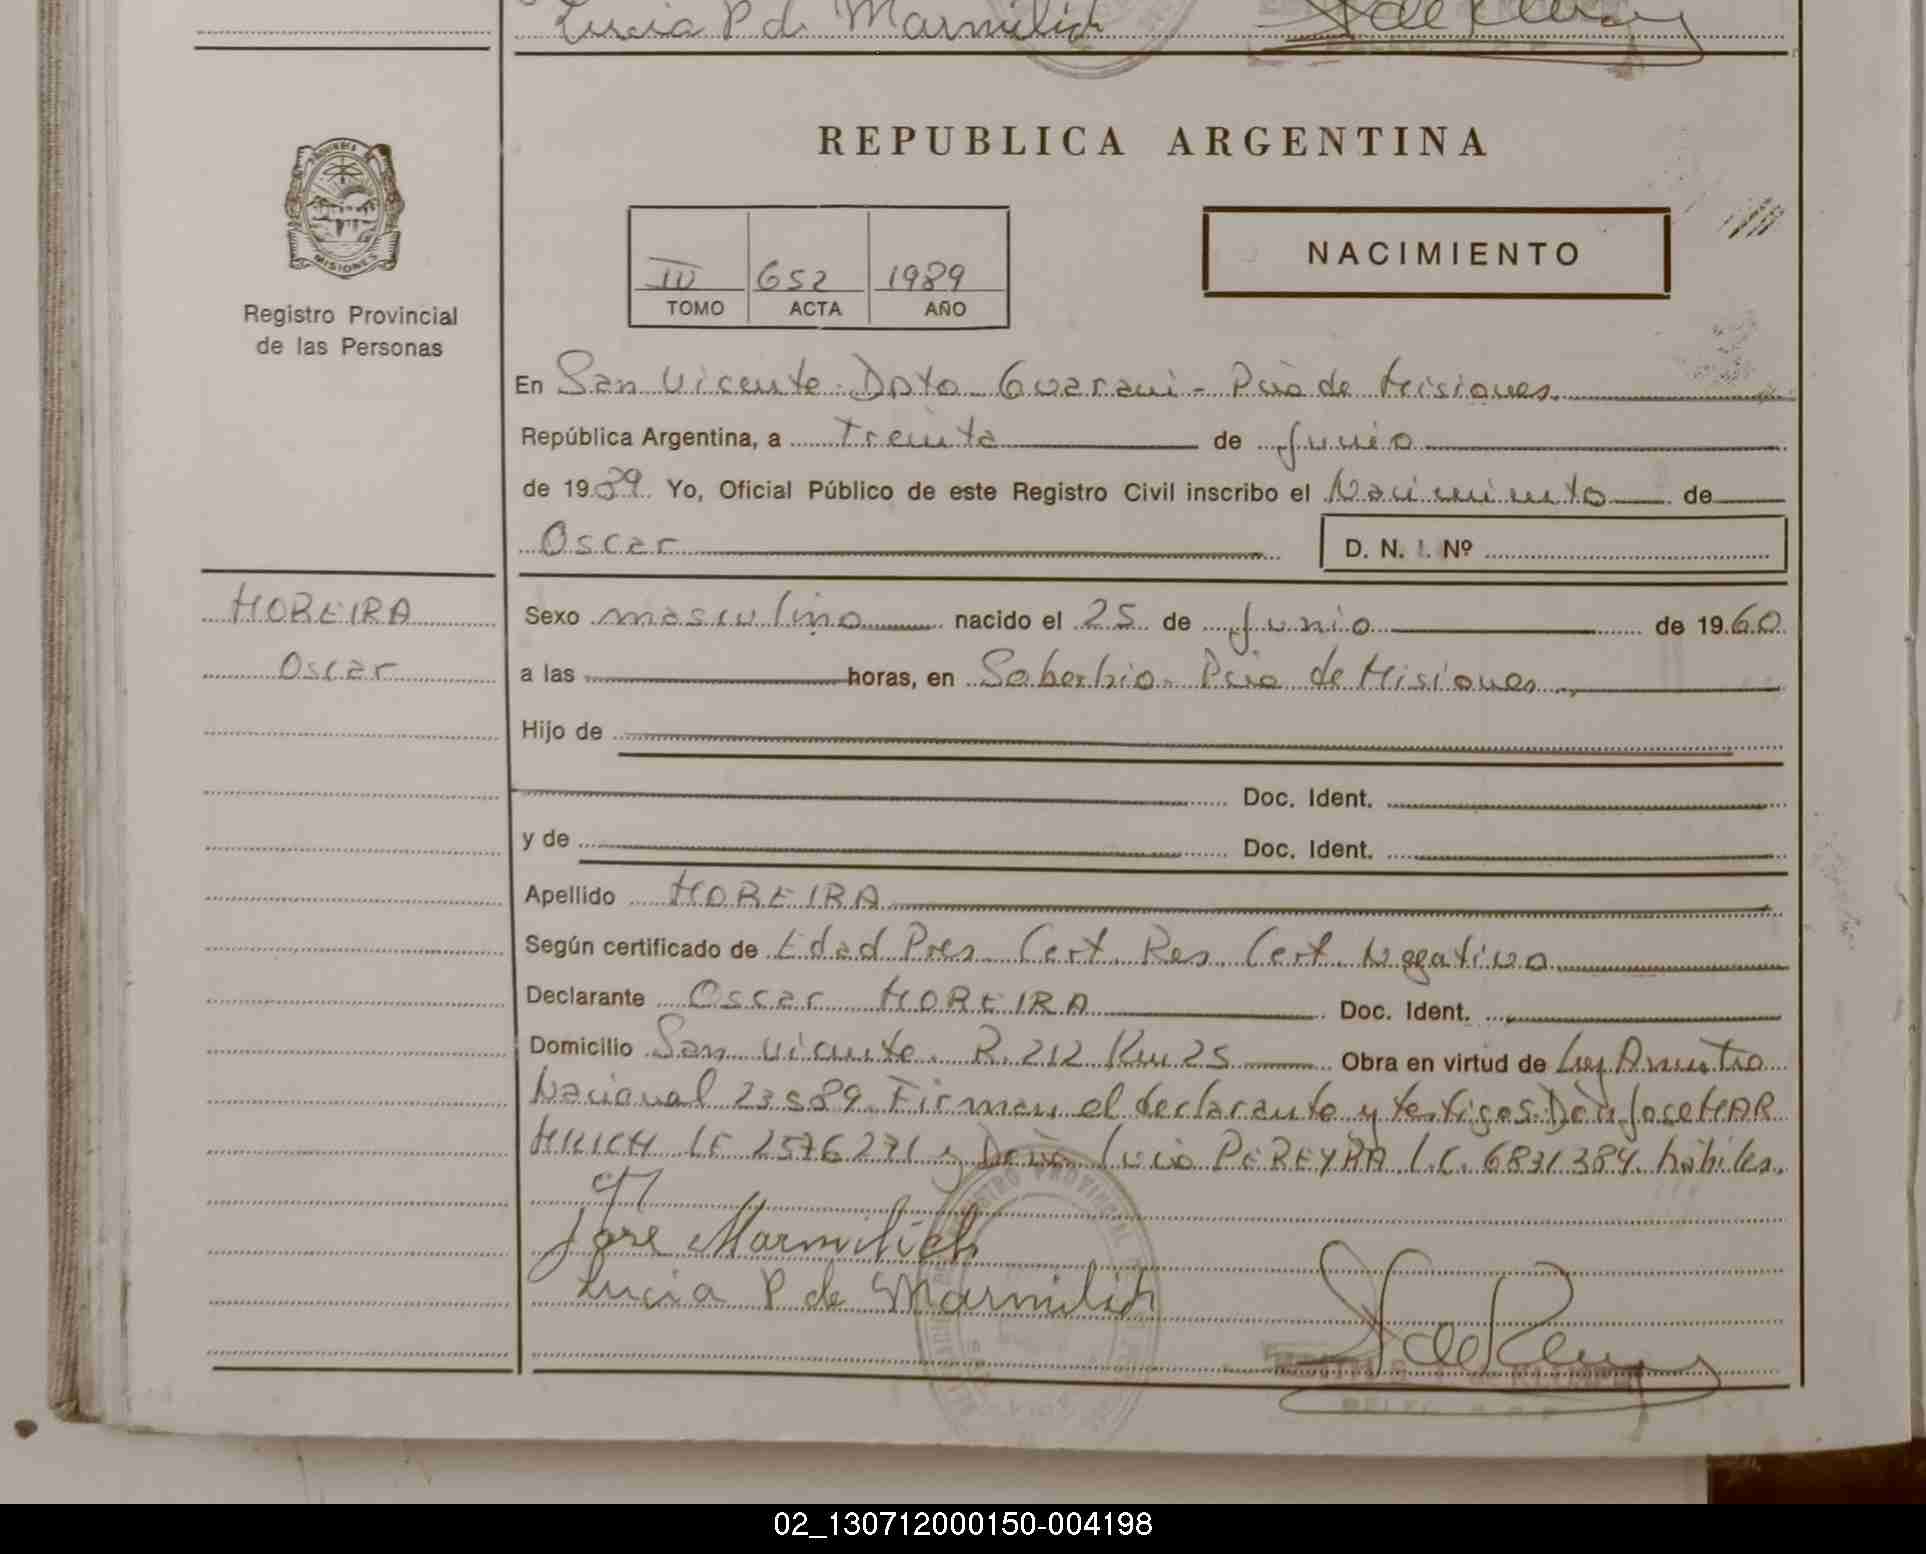 Lucia P de Marmilich
REPUBLICA ARGENTINA
PROVINCIA
MISIONES
Registro Provincial
de las Personas
NACIMIENTO
IV 652 1989
TOMO ACTA AÑO
En San Vicente Dpto Guarani - Pcia de Misiones
República Argentina, a Treinta de Junio
de 1989 Yo, Oficial Público de este Registro Civil inscribo el Nacimiento de
Oscar D. N. I. Nº
MOREIRA
Oscar
Sexo masculino nacido el 25 de Junio de 1960
a las horas, en Soberbio - Pcia de Misiones
Hijo de
Doc. Ident.
y de Doc. Ident.
Apellido MOREIRA
Según certificado de Edad Pres. Cert. Res. Cert. Negativo
Declarante Oscar MOREIRA Doc. Ident.
Domicilio San Vicente. R. 212 Km 25 Obra en virtud de Ley Amnistia
Nacional 23589. Firman el declarante y testigos: Don Jose MAR
MILICH LE 2576271 y Doña Lucia PEREYRA L.C. 6831384 hábiles.
Jose Marmilich
Lucia P de Marmilich
02_130712000150-004198